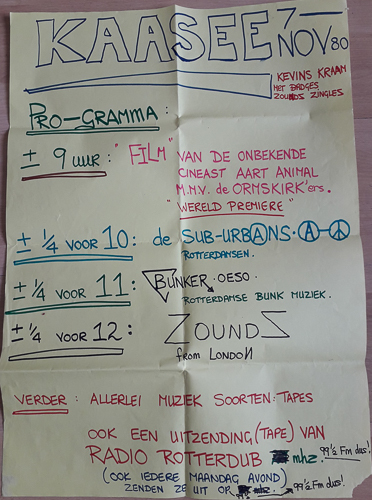 KAASEE 7— NOV 80
KEVINS KRAAM
MET BADGES
ZOUNDS ZINGLES
PRO-GRAMMA:
± 9 UUR: "FILM" VAN DE ONBEKENDE
CINEAST AART ANIMAL
M.M.V. de ORMSKIRK'ers.
"WERELD PREMIERE"
± ¼ VOOR 10: de SUB-URBANS.
ROTTERDAMSEN.
± ¼ VOOR 11: BUNKER.OESO.
ROTTERDAMSE BUNK MUZIEK.
± ¼ VOOR 12: ZOUNDS
from LONDON
VERDER: ALLERLEI MUZIEK SOORTEN: TAPES
OOK EEN UITZENDING (TAPE) VAN
RADIO ROTTERDUB mhz. 99½ Fm dus!
(OOK IEDERE MAANDAG AVOND)
ZENDEN ZE UIT OP mhz. 99½ Fm dus!